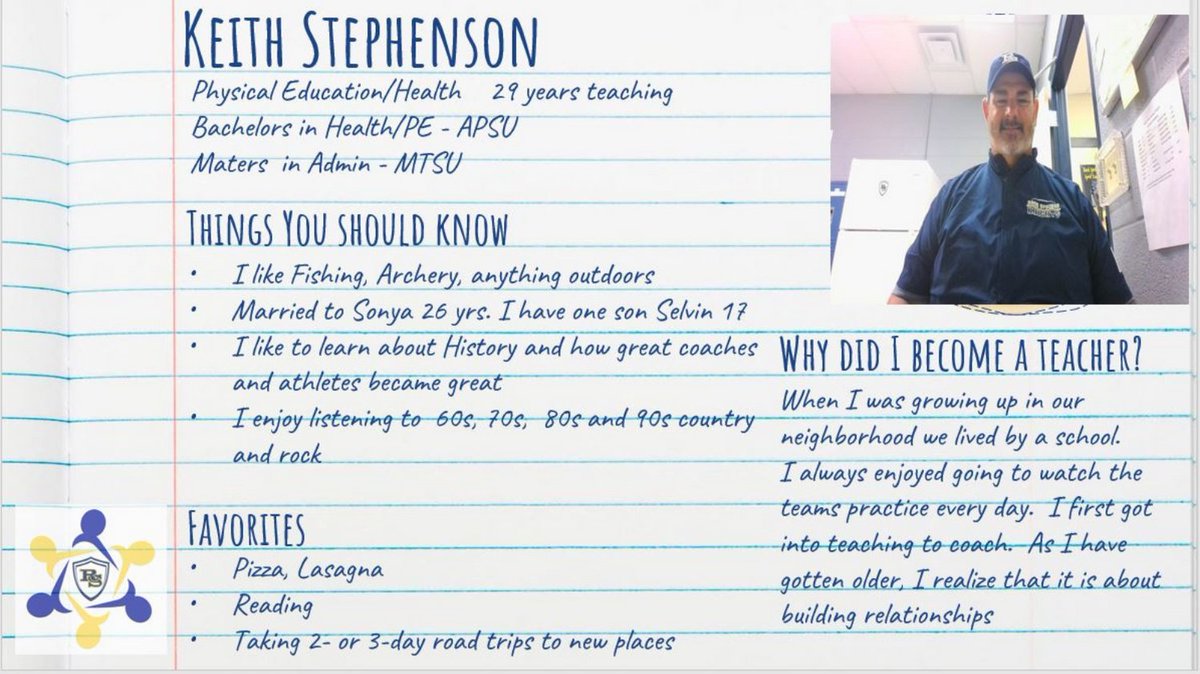 KEITH STEPHENSON
Physical Education/Health 29 years teaching
Bachelors in Health/PE - APSU
Maters in Admin - MTSU
THINGS YOU SHOULD KNOW
• I like Fishing, Archery, anything outdoors
• Married to Sonya 26 yrs. I have one son Selvin 17
• I like to learn about History and how great coaches
and athletes became great
• I enjoy listening to 60s, 70s, 80s and 90s country
and rock
FAVORITES
• Pizza, Lasagna
• Reading
• Taking 2- or 3-day road trips to new places
WHY DID I BECOME A TEACHER?
When I was growing up in our
neighborhood we lived by a school.
I always enjoyed going to watch the
teams practice every day. I first got
into teaching to coach. As I have
gotten older, I realize that it is about
building relationships